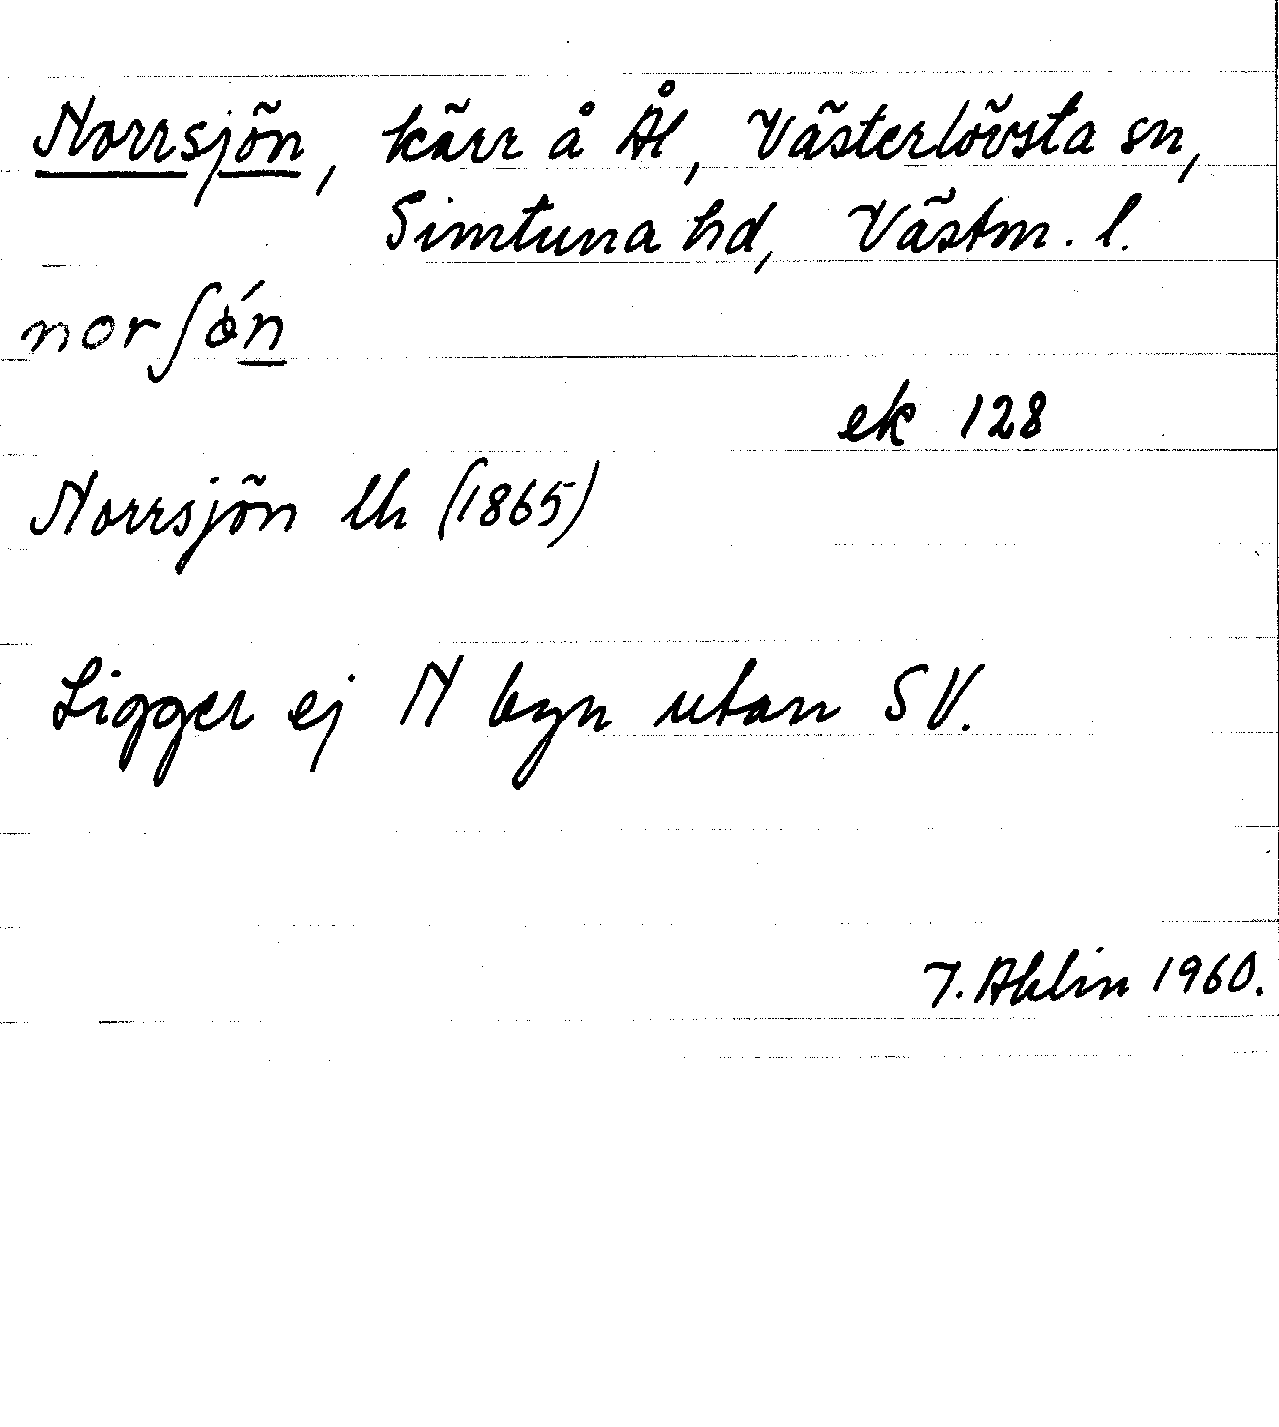 Norrsjön, kärr å Ål, Västerlövsta sn,
Simtuna hd, Västm. l.
norʃǿn
ek 128
Norrsjön lh (1865)
Ligger ej N byn utan SV.
T. Ahlin 1960.